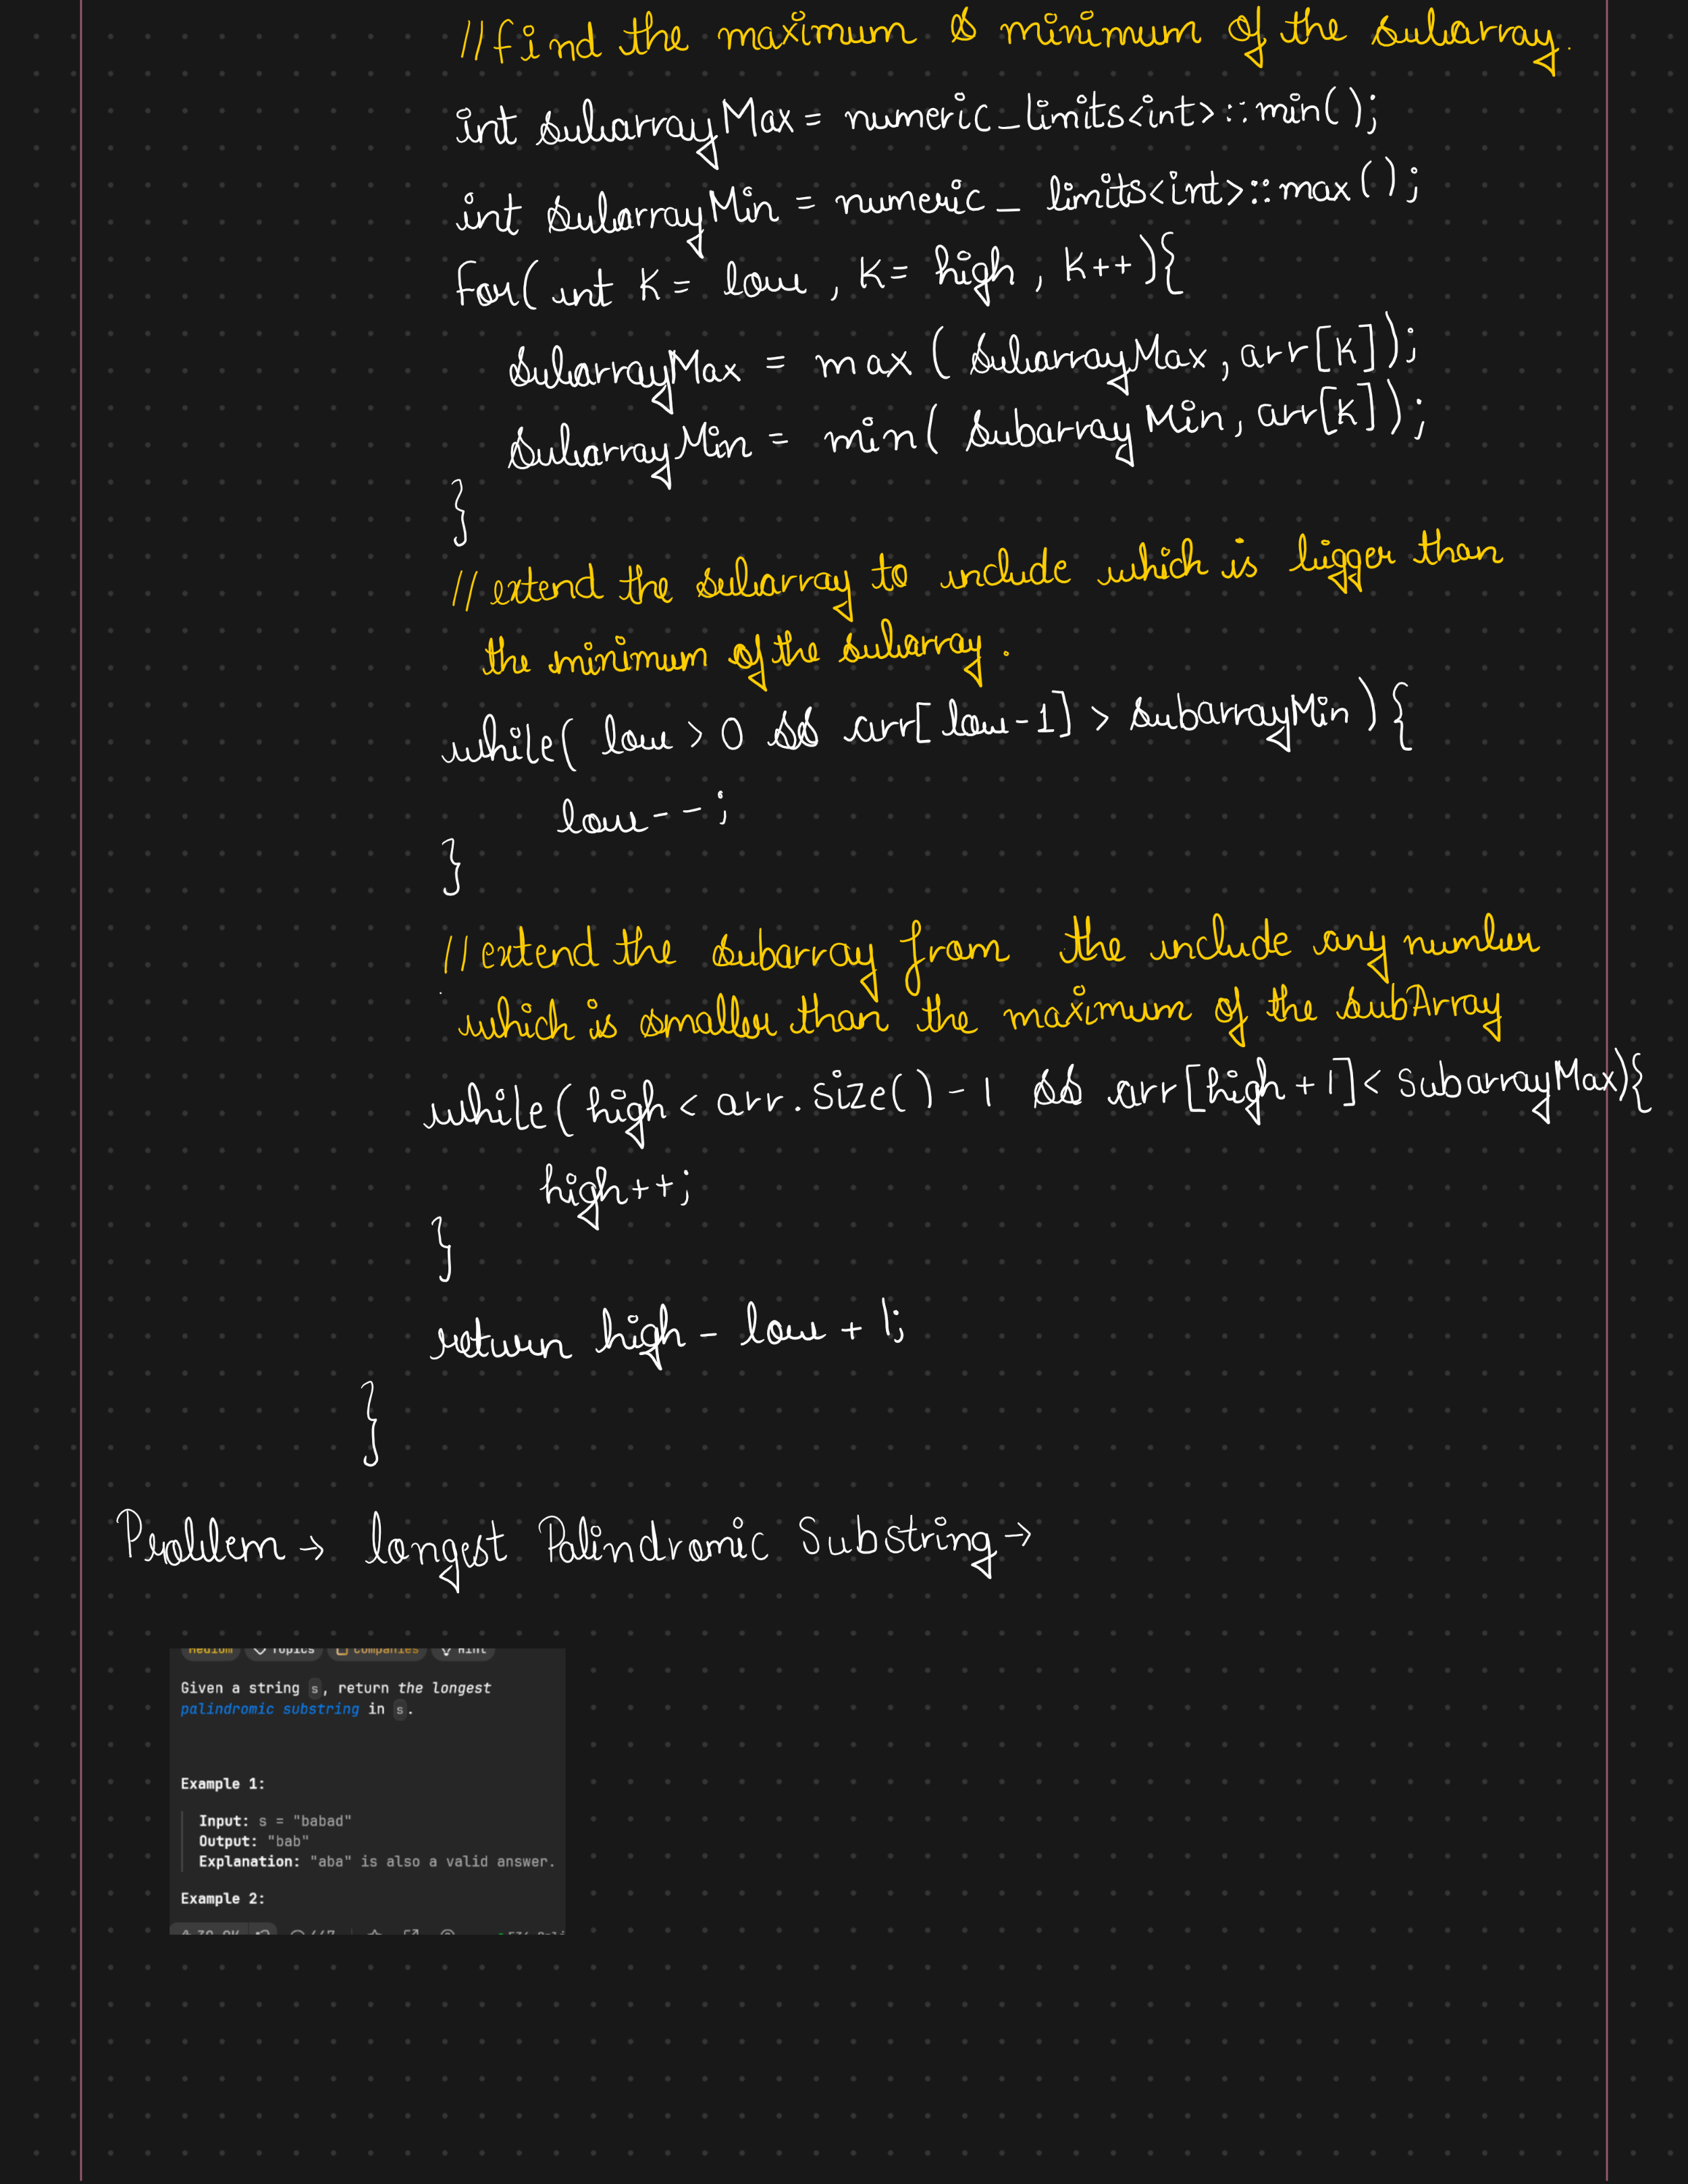 //find the maximum & minimum of the subarray.
int subarrayMax = numeric_limits<int>::min();
int subarrayMin = numeric_limits<int>::max();
for( int K = low , K = high , K++){
subarrayMax = max ( subarrayMax , arr[K]);
subarrayMin = min( subarrayMin, arr[K]);
}
// extend the subarray to include which is bigger than
the minimum of the subarray .
while( low > 0 && arr[ low-1] > subarrayMin ) {
low--;
}
// extend the subarray from the include any number
which is smaller than the maximum of the subArray
while( high < arr.size() - 1 && arr[high + 1] < SubarrayMax){
high++;
}
return high - low + 1;
}
Problem → longest Palindromic Substring →
Medium Topics Companies Hint
Given a string s, return the longest
palindromic substring in s.
Example 1:
Input: s = "babad"
Output: "bab"
Explanation: "aba" is also a valid answer.
Example 2: